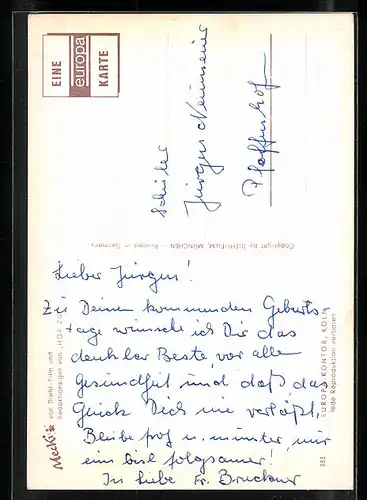 EINE
europa
KARTE
Schüler
Jürgen
Pfaffenhof
Copyright by DIEHL-FILM, MÜNCHEN — Printed in Germany
Lieber Jürgen!
Zu Deinem kommenden Geburts
tage wünsche ich Dir das
denkbar Beste, vor alle
Gesundheit und daß das
Glück Dich nie verläßt.
Bleibe frof u. munter, nur
ein bisl folgsamer!
In Liebe Fr. Bruckner
Mecki
von Diehl-Film und
Redaktionsigel von „HÖR ZU"
EUROPA KONTOR, KÖLN
Jede Reproduktion verboten
355